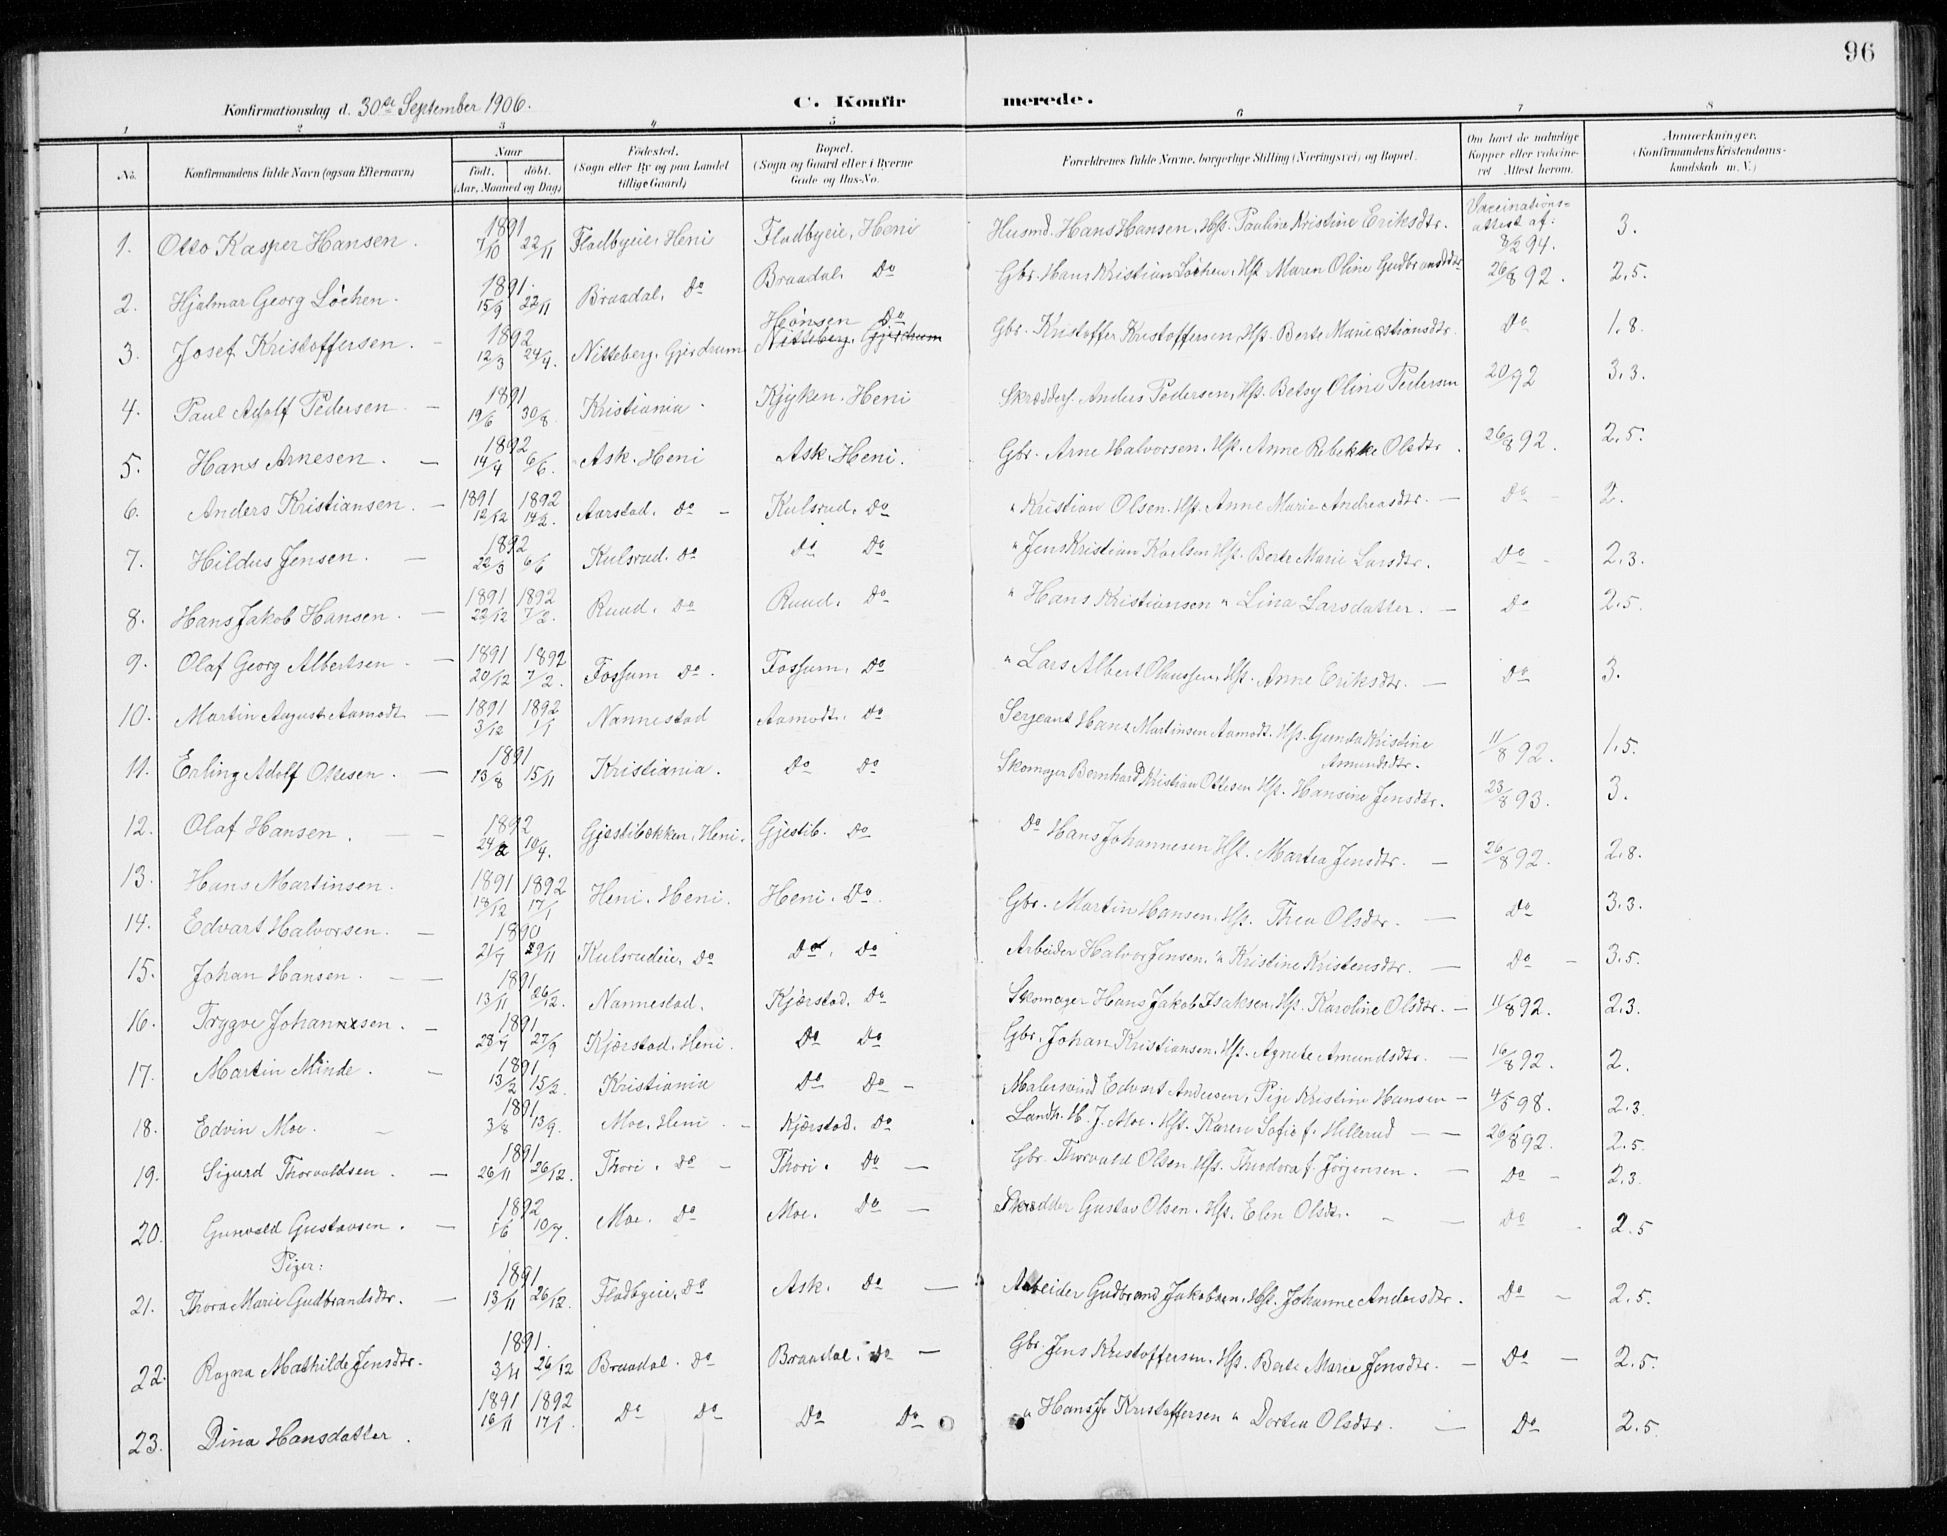 96
Konfirmationsdag d. 30te September 1906. C. Konfirmerede.
1 2 3 4 5 6 7 8
No. Konfirmandens fulde Navn (ogsaa Efternavn) Naar født. døbt. (Aar, Maaned og Dag) Fødested. (Sogn eller By og paa Landet tillige Gaard) Bopæl. (Sogn og Gaard eller i Byerne Gade og Hus-No. Forældrenes fulde Navne, borgerlige Stilling (Næringsvei) og Bopæl. Om havt de naturlige Kopper eller vakcineret Attest herom. Anmærkninger. (Konfirmandens Kristendomskundskab m. V.)
1. Otto Kasper Hansen. 1891 7/10 22/11 Fladbyeie, Heni Fladbyeie, Heni Husmd. Hans Hansen, Hst. Pauline Kristine Eriksdtr. Vaccinationsattest af: 8/2 94. 3.
2. Hjalmar Georg Løchen. 1891. 15/9 22/11 Braadal, Do Braadal, Do Gbr. Hans Kristian Løchen, Hst Maren Oline Gudbrandsdtr 26/8 92. 2,5.
3. Josef Kristoffersen. 1892 12/3 24/4. Nitteberg, Gjerdrum Hønsen Do Nitteberg, Gjerdrum Gbr. Kristoffer Kristoffersen, Hst. Berte Marie Do 1.8.
4. Paul Adolf Pedersen. 1891 19/6 30/8. Kristiania. Kjyken. Heni Anders Pedersen, Hst. Betsy Oline Pedersen 20/ 92 3.3.
5. Hans Arnesen. 1892 14/4 6/6. Ask. Heni Ask. Heni. Gbr. Arne Halvorsen. Hst. Anne Rebekke Olsdtr. 26/8 92. 2,5.
6. Anders Kristiansen. 1891 12/12 1892 14/2. Aarstad. Do Kulsrud. Do " Kristian Olsen. Hst. Anne Marie Andreasdtr. Do 2.
7. Hildus Jensen. 1892 22/3 6/6 Kulsrud. Do Do Do " Jens Kristian Karlsen Hst. Berte Marie Larsdtr. Do 2.3.
8. Hans Jakob Hansen. 1891 22/12 1892 7/2. Ruud. Do Ruud. Do " Hans Kristiansen " Lina Larsdatter. Do 2.5.
9. Olaf Georg Albertsen. 1891 20/12 1892 7/2. Fossum Do. Fossum. Do " Lars Albert Olaussen, Hst. Anne Eriksdtr. Do 3.
10. Martin August Aamodt 1891 3/12 1892 1/1 Nannestad Aamodt. Do Sergeant Hans Martinsen Aamodt. Hst. Gunda Kristine Amundsdtr. 11/8 92. 1.5.
11. Erling Adolf Ottesen. 1891 13/8 15/11 Kristiania. Do Do Skomager Bernhard Kristian Ottesen Hst. Hansine Jensdtr. 23/8 93. 3.
12. Olaf Hansen. 1892 24/2 10/4. Gjæstibækken, Heni. Gjæstib. Do Do Hans Johannesen Hst. Martea Jensdtr. 26/8 92. 2.8.
13. Hans Martinsen. 1891 18/12 1892 17/1 Heni. Heni. Heni. Do. Gbr. Martin Hansen. Hst. Thea Olsdtr. Do 3.3.
14. Edvart Halvorsen. 1890 21/9 29/11 Kulsrudeie, Do Do, Do Arbeider Halvor Jensen. " Kristine Kristensdtr. Do 3.5.
15. Johan Hansen. 1891 13/11 26/12. Nannestad. Kjærstad. Do Skomager Hans Jakob Isaksen. Hst. Karoline Olsdtr. 11/8 92. 2.3.
16. Trygve Johannesen. 1891 28/7 27/9 Kjærstad, Heni. Do Do Gbr. Johan Kristiansen. Hst. Agnete Amundsdtr. 16/8 92. 2.
17. Martin Minde. 1891 13/2 15/2. Kristiania Do Do Malersvend Edvart Andersen, Pige Kristine Hansen 4/5 98. 2.3
18. Edvin Moe. 1891 3/8 13/9. Moe. Heni Kjærstad. Do Landh. H. J. Moe. Hst. Karen Sofie f. Hellerud 26/8 92. 2.5.
19. Sigurd Thorvaldsen. 1891 26/11 26/12. Thori. Do Thori. Do Gbr. Thorvald Olsen. Hst. Theodora f. Jørgensen. Do 2.3.
20. Gunvald Gustavsen. 1892 1/6 10/7. Moe. Do Moe. Do Skrædder Gustav Olsen. Hst. Elen Olsdtr. Do 2.5
Piger:
21. Thora Marie Gudbrandsdtr. 1891 13/11 26/12. Fladbyeie, Do Ask. Do Arbeider Gudbrand Jakobsen, Hst. Johanne Andersdtr. Do 2.5.
22. Ragna Mathilde Jensdtr. 1891. 3/11 26/12 Braadal. Do Braadal. Do Gbr. Jens Kristoffersen. Hst. Berte Marie Jensdtr. Do 2.5.
23. Dina Hansdatter. 1891 16/11 1892 17/1. Do Do Do Do " Hans Kristoffersen " Dortea Olsdtr. Do 2.5.